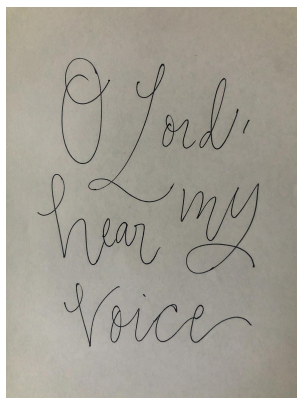 O Lord,
hear my
Voice